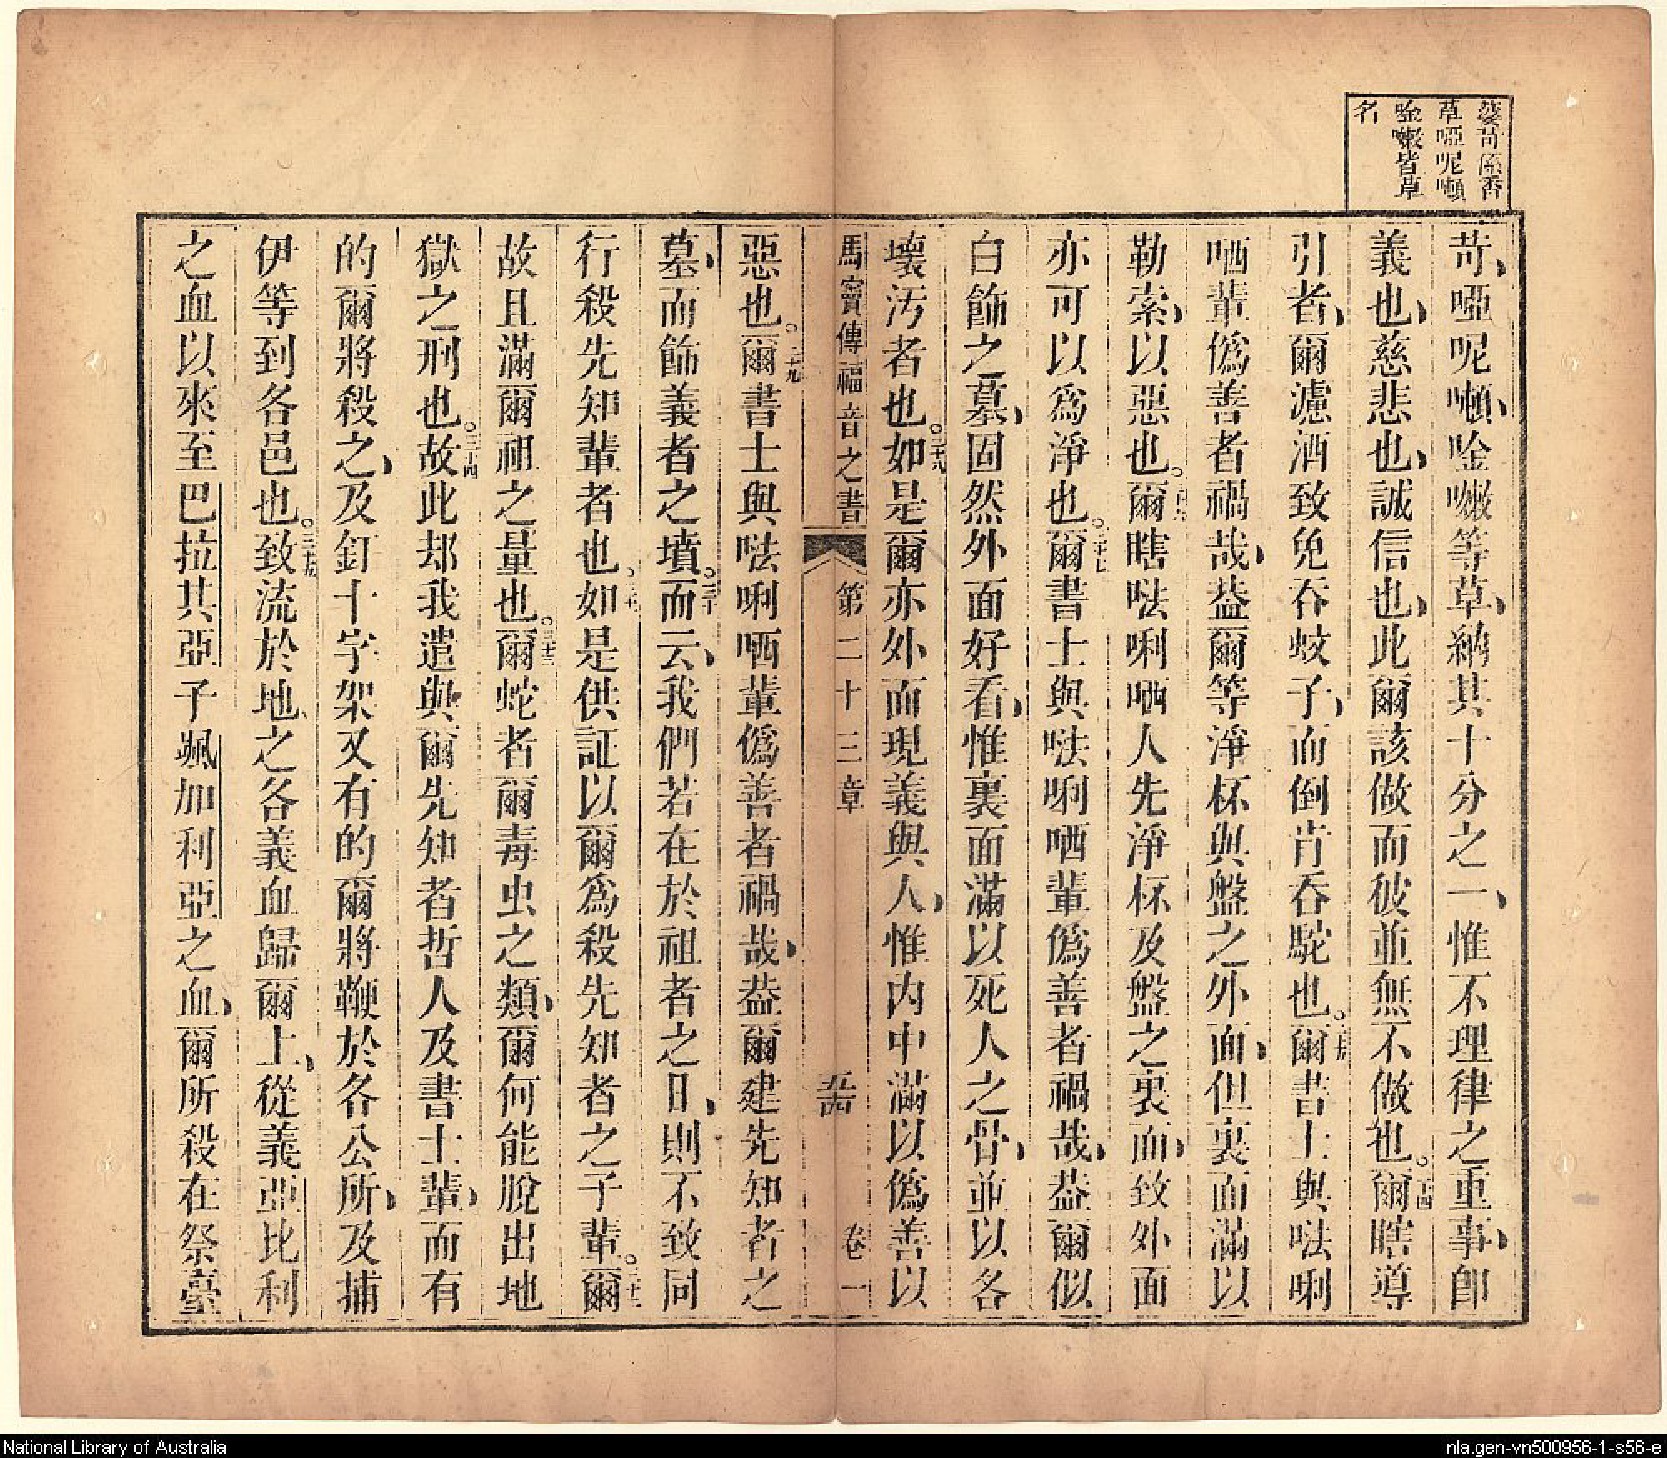 薆苛係香
草啞呢嚬
唫嚬皆草
名
苛、啞呢嚬、唫嗽等草、納其十分之一、惟不理律之重事、卽
義也、慈悲也、誠信也、此爾該做而彼並無不做也。二十四爾瞎導
引者、爾濾酒致免吞蚊子、而倒肯吞駝也。二十五爾書士與㗁唎
哂輩僞善者禍哉、葢爾等淨杯與盤之外面、但裏面滿以
勒索、以惡也。二十六爾瞎㗁唎哂人先淨杯及盤之裏面、致外面
亦可以爲淨也。二十七爾書士與㗁唎哂輩僞善者禍哉、葢爾似
白飾之墓、固然外面好看、惟裏面滿以死人之骨、並以各
壞汚者也。二十八如是爾亦外面現義與人、惟內中滿以僞善以
馬竇傳福音之書 第二十三章 五十四 卷一
惡也。二十九爾書士與㗁唎哂輩僞善者禍哉、葢爾建先知者之
墓、而飾義者之墳。三十而云、我們若在於祖者之日、則不致同
行殺先知輩者也。三十一如是供証以爾爲殺先知者之子輩。三十二爾
故且滿爾祖之量也。三十三爾蛇者爾毒虫之類、爾何能脫出地
獄之刑也。三十四故此却我遣與爾先知者哲人及書士輩、而有
的爾將殺之、及釘十字架又有的爾將鞭於各公所、及捕
伊等到各邑也。三十五致流於地、之各義血歸爾上、從義亞比利
之血以來至巴拉其亞子颯加利亞之血、爾所殺在祭臺
National Library of Australia
nla.gen-vn500956-1-s56-e